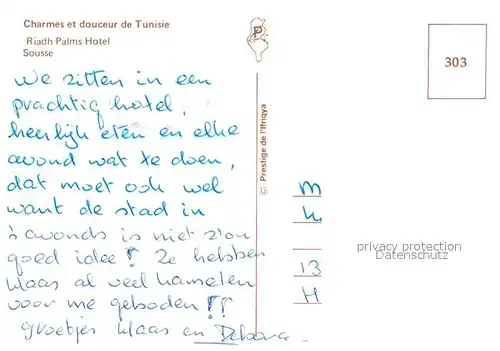 Charmes et douceur de Tunisie
Riadh Palms Hotel
Sousse
We zitten in een
prachtig hotel,
heerlijk eten en elke
avond wat te doen,
dat moet ook wel
want de stad in
's avonds is niet zo'n
goed idee! Ze hebben
Klaas al veel kamelen
voor me geboden!!
groetjes Klaas en Debora.
P
© Prestige de l'Ifriqya
303
M
H
13
H
privacy protection
Datenschutz